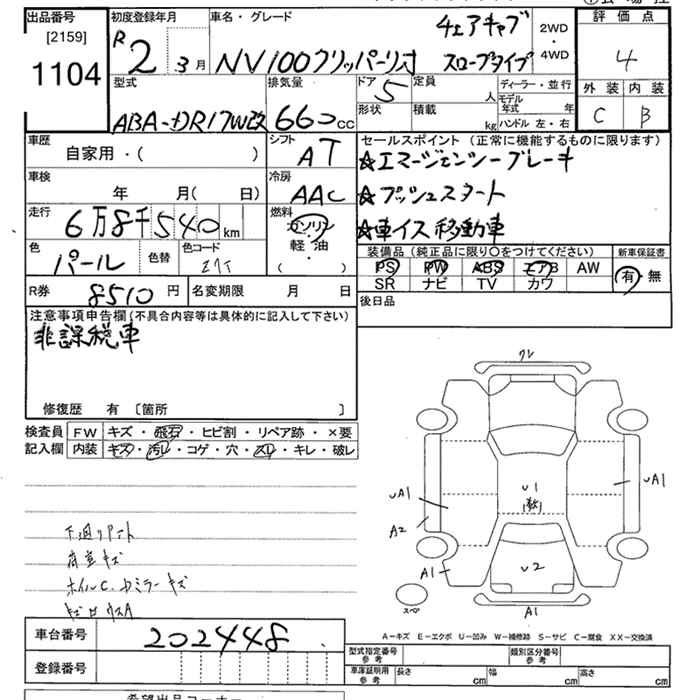 出品番号
[2159]
1104
初度登録年月
R2 3月
車名・グレード
チェアキャブ
NV100クリッパーリオ スロープタイプ
2WD
・
4WD
評価点
4
外装 内装
C B
型式
ABA-DR17W改
排気量
660cc
ドア
5
定員
人
形状
積載
kg
ディーラー・並行
モデル年式 年
ハンドル 左・右
車歴
自家用・( )
シフト
AT
セールスポイント(正常に機能するものに限ります)
☆エマージェンシーブレーキ
☆プッシュスタート
☆車イス移動車
車検
年 月( 日)
冷房
AAC
走行
6万8千540km
燃料
ガソリン
軽・油
( ・ )
色
パール
色替
色コード
装備品(純正品に限り○をつけてください)
PS PW ABS エアB AW
SR ナビ TV カワ
新車保証書
有・無
R券 8510円
名変期限 月 日
後日品
注意事項申告欄(不具合内容等は具体的に記入して下さい)
非課税車
修復歴 有 〔箇所 〕
検査員記入欄
FW キズ・飛石・ヒビ割・リペア跡・×要
内装 キズ・汚レ・コゲ・穴・スレ・キレ・破レ
下廻りアート
キズ
ホイルC. ドミラーキズ
ワレ
U1
UA1
UA1
A2
A1
U2
A1
スペア
A-キズ E-エクボ U-凹み W-補修跡 S-サビ C-腐食 XX-交換済
車台番号
202448
登録番号
型式指定番号参考
類別区分番号参考
車庫証明用参考
長さ cm 幅 cm 高さ cm
希望出品コーナー